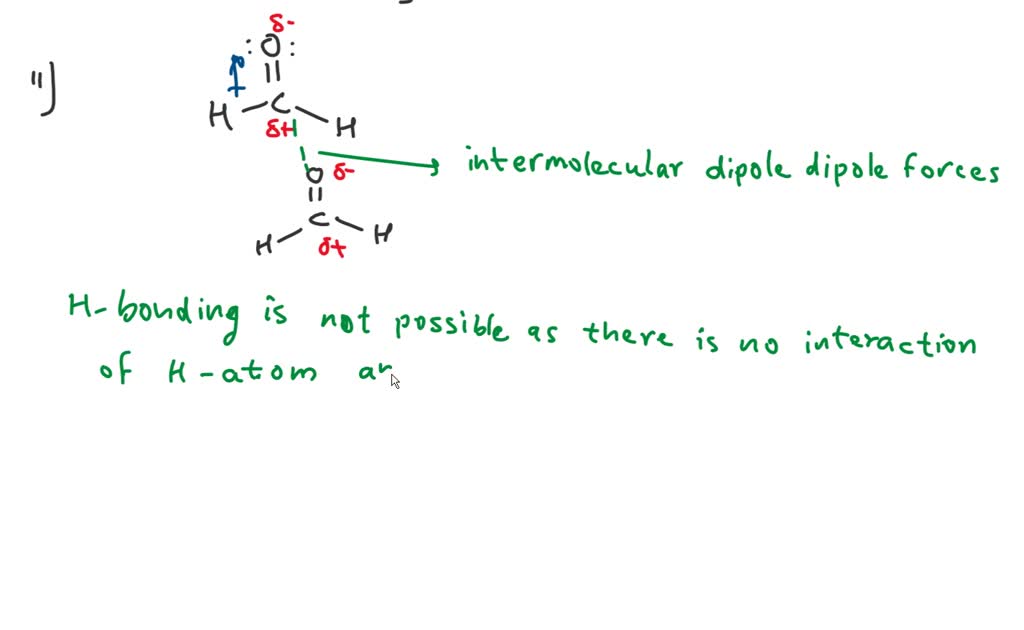 δ-
:O:
||
11)
H C H
δ+
O δ-
intermolecular dipole dipole forces
||
H C H
δ+
H-bonding is not possible as there is no interaction
of H-atom an